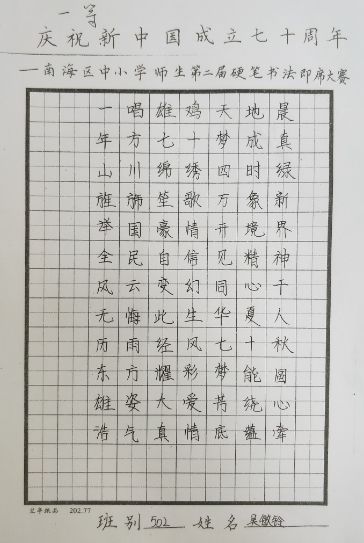 一等
庆祝新中国成立七十周年
——南海区中小学师生第二届硬笔书法即席大赛
一唱雄鸡天地晨
年方七十梦成真
山川绵绣四时绿
旌旆笙歌万象新
举国豪情开境界
全民自信见精神
风云变幻同心干
无悔此生华夏人
历雨经风七十秋
东方耀彩梦能圆
雄姿大爱书绕心
浩气真情底蕴牵
202.77
班别 502 姓名 吴